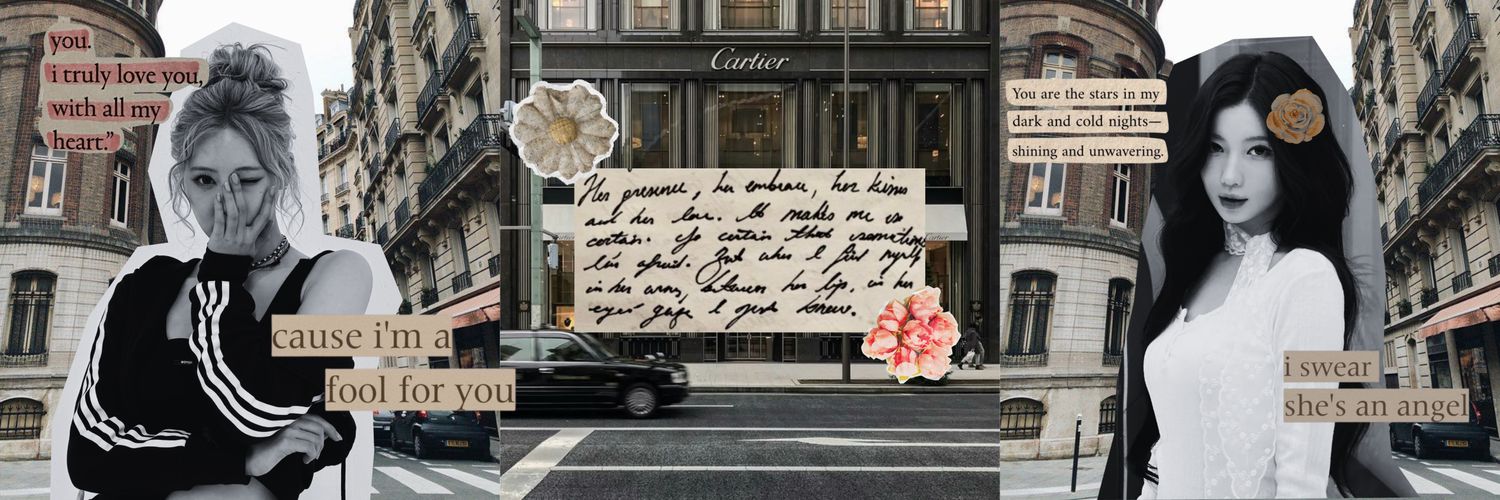 you.
i truly love you,
with all my
heart.”
cause i'm a
fool for you
Cartier
Her presence, her embrace, her kisses
and her love. It makes me so
certain. So certain that sometimes
I'm afraid. But when I find myself
in her arms, between her lips, in her
eyes' gaze I just know.
Cartier
You are the stars in my
dark and cold nights—
shining and unwavering.
i swear
she's an angel